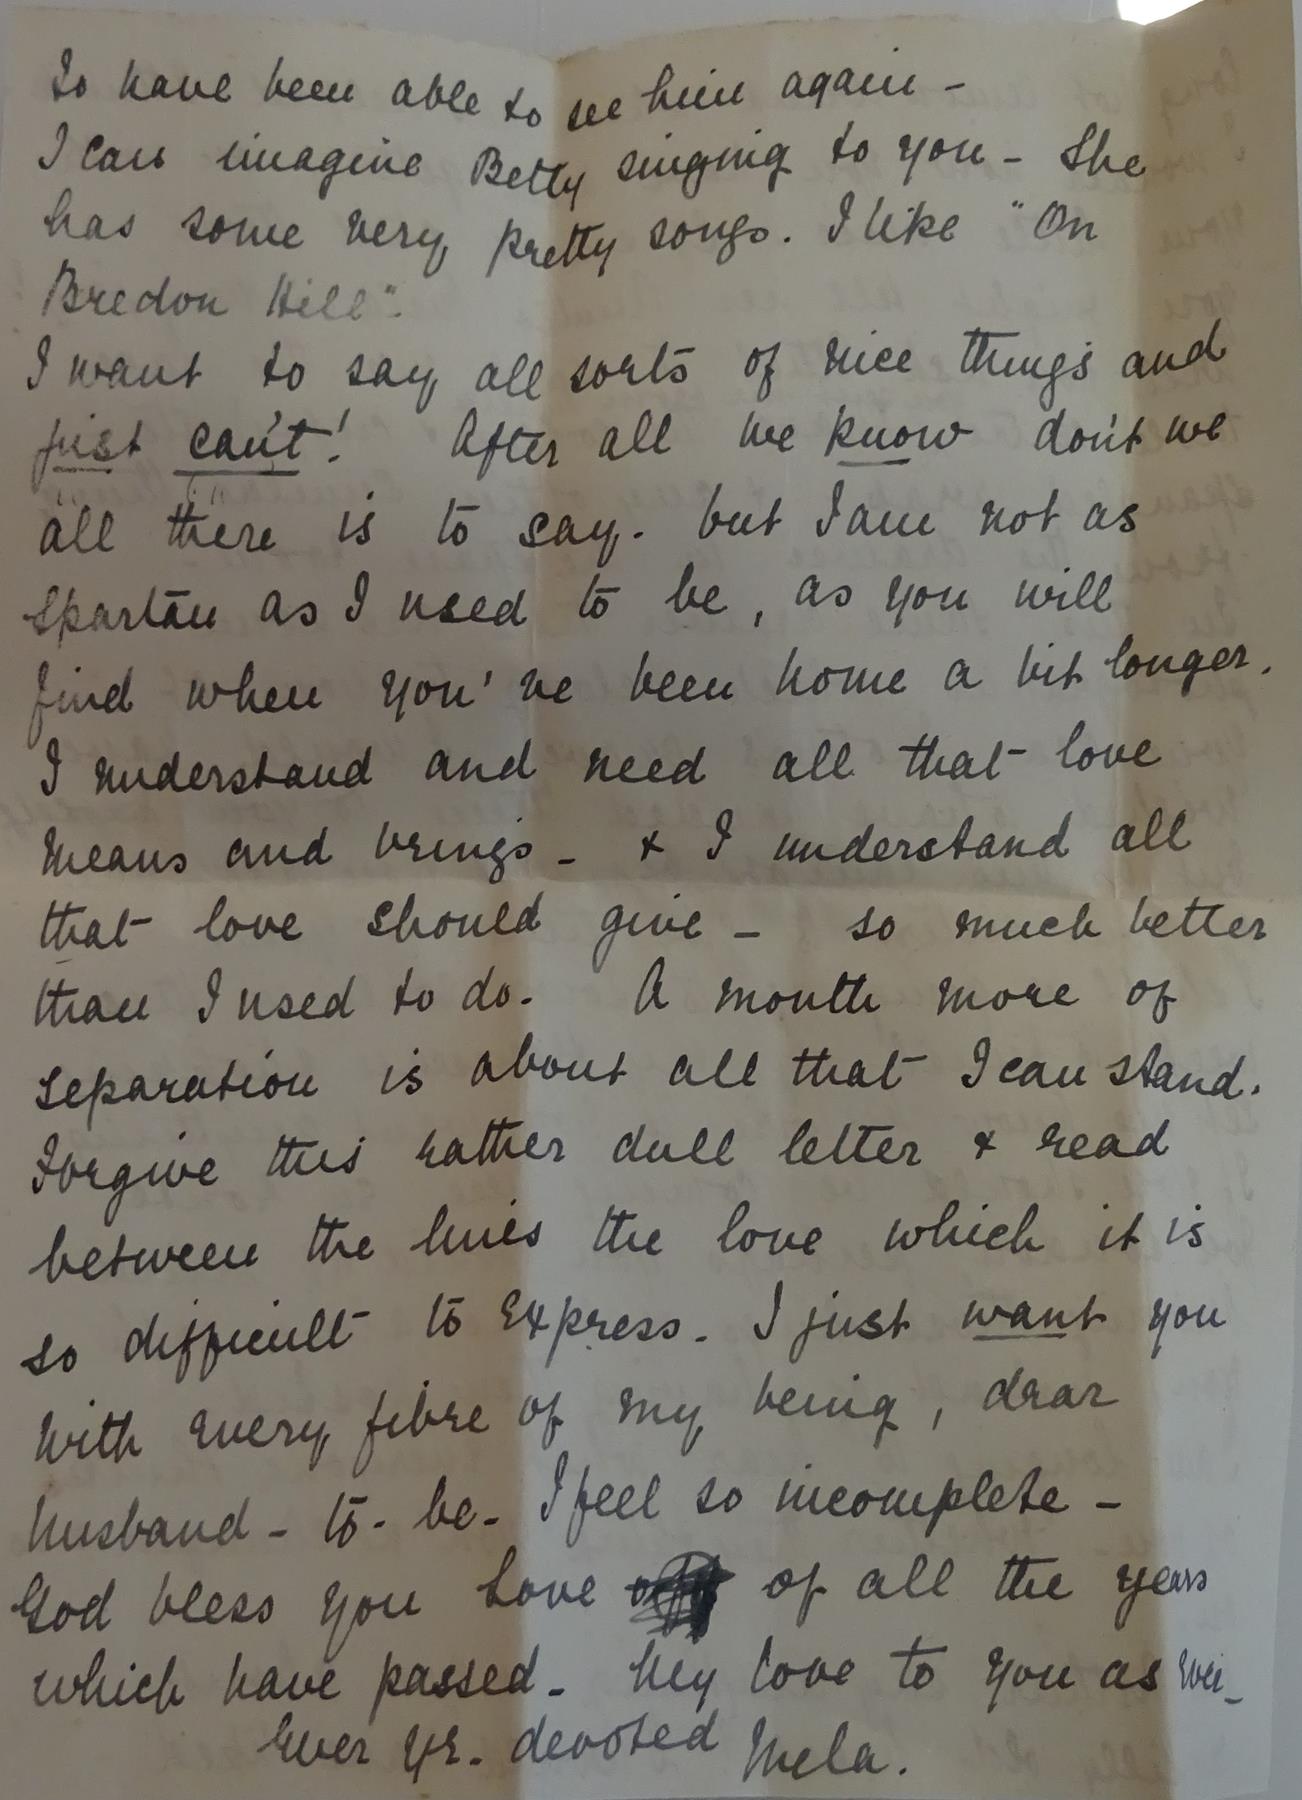 to have been able to see him again -
I can imagine Betty singing to you - She
has some very pretty songs. I like "On
Bredon Hill".
I want to say all sorts of nice things and
just can't! After all we know don't we
all there is to say. but I am not as
Spartan as I used to be, as you will
find when you've been home a bit longer.
I understand and need all that love
means and brings - & I understand all
that love should give - so much better
than I used to do. A month more of
separation is about all that I can stand.
Forgive this rather dull letter & read
between the lines the love which it is
so difficult to express. I just want you
with every fibre of my being, dear
husband - to - be - I feel so incomplete -
God bless you Love of all the years
which have passed - My love to you as ever -
Ever yr. devoted Mela.